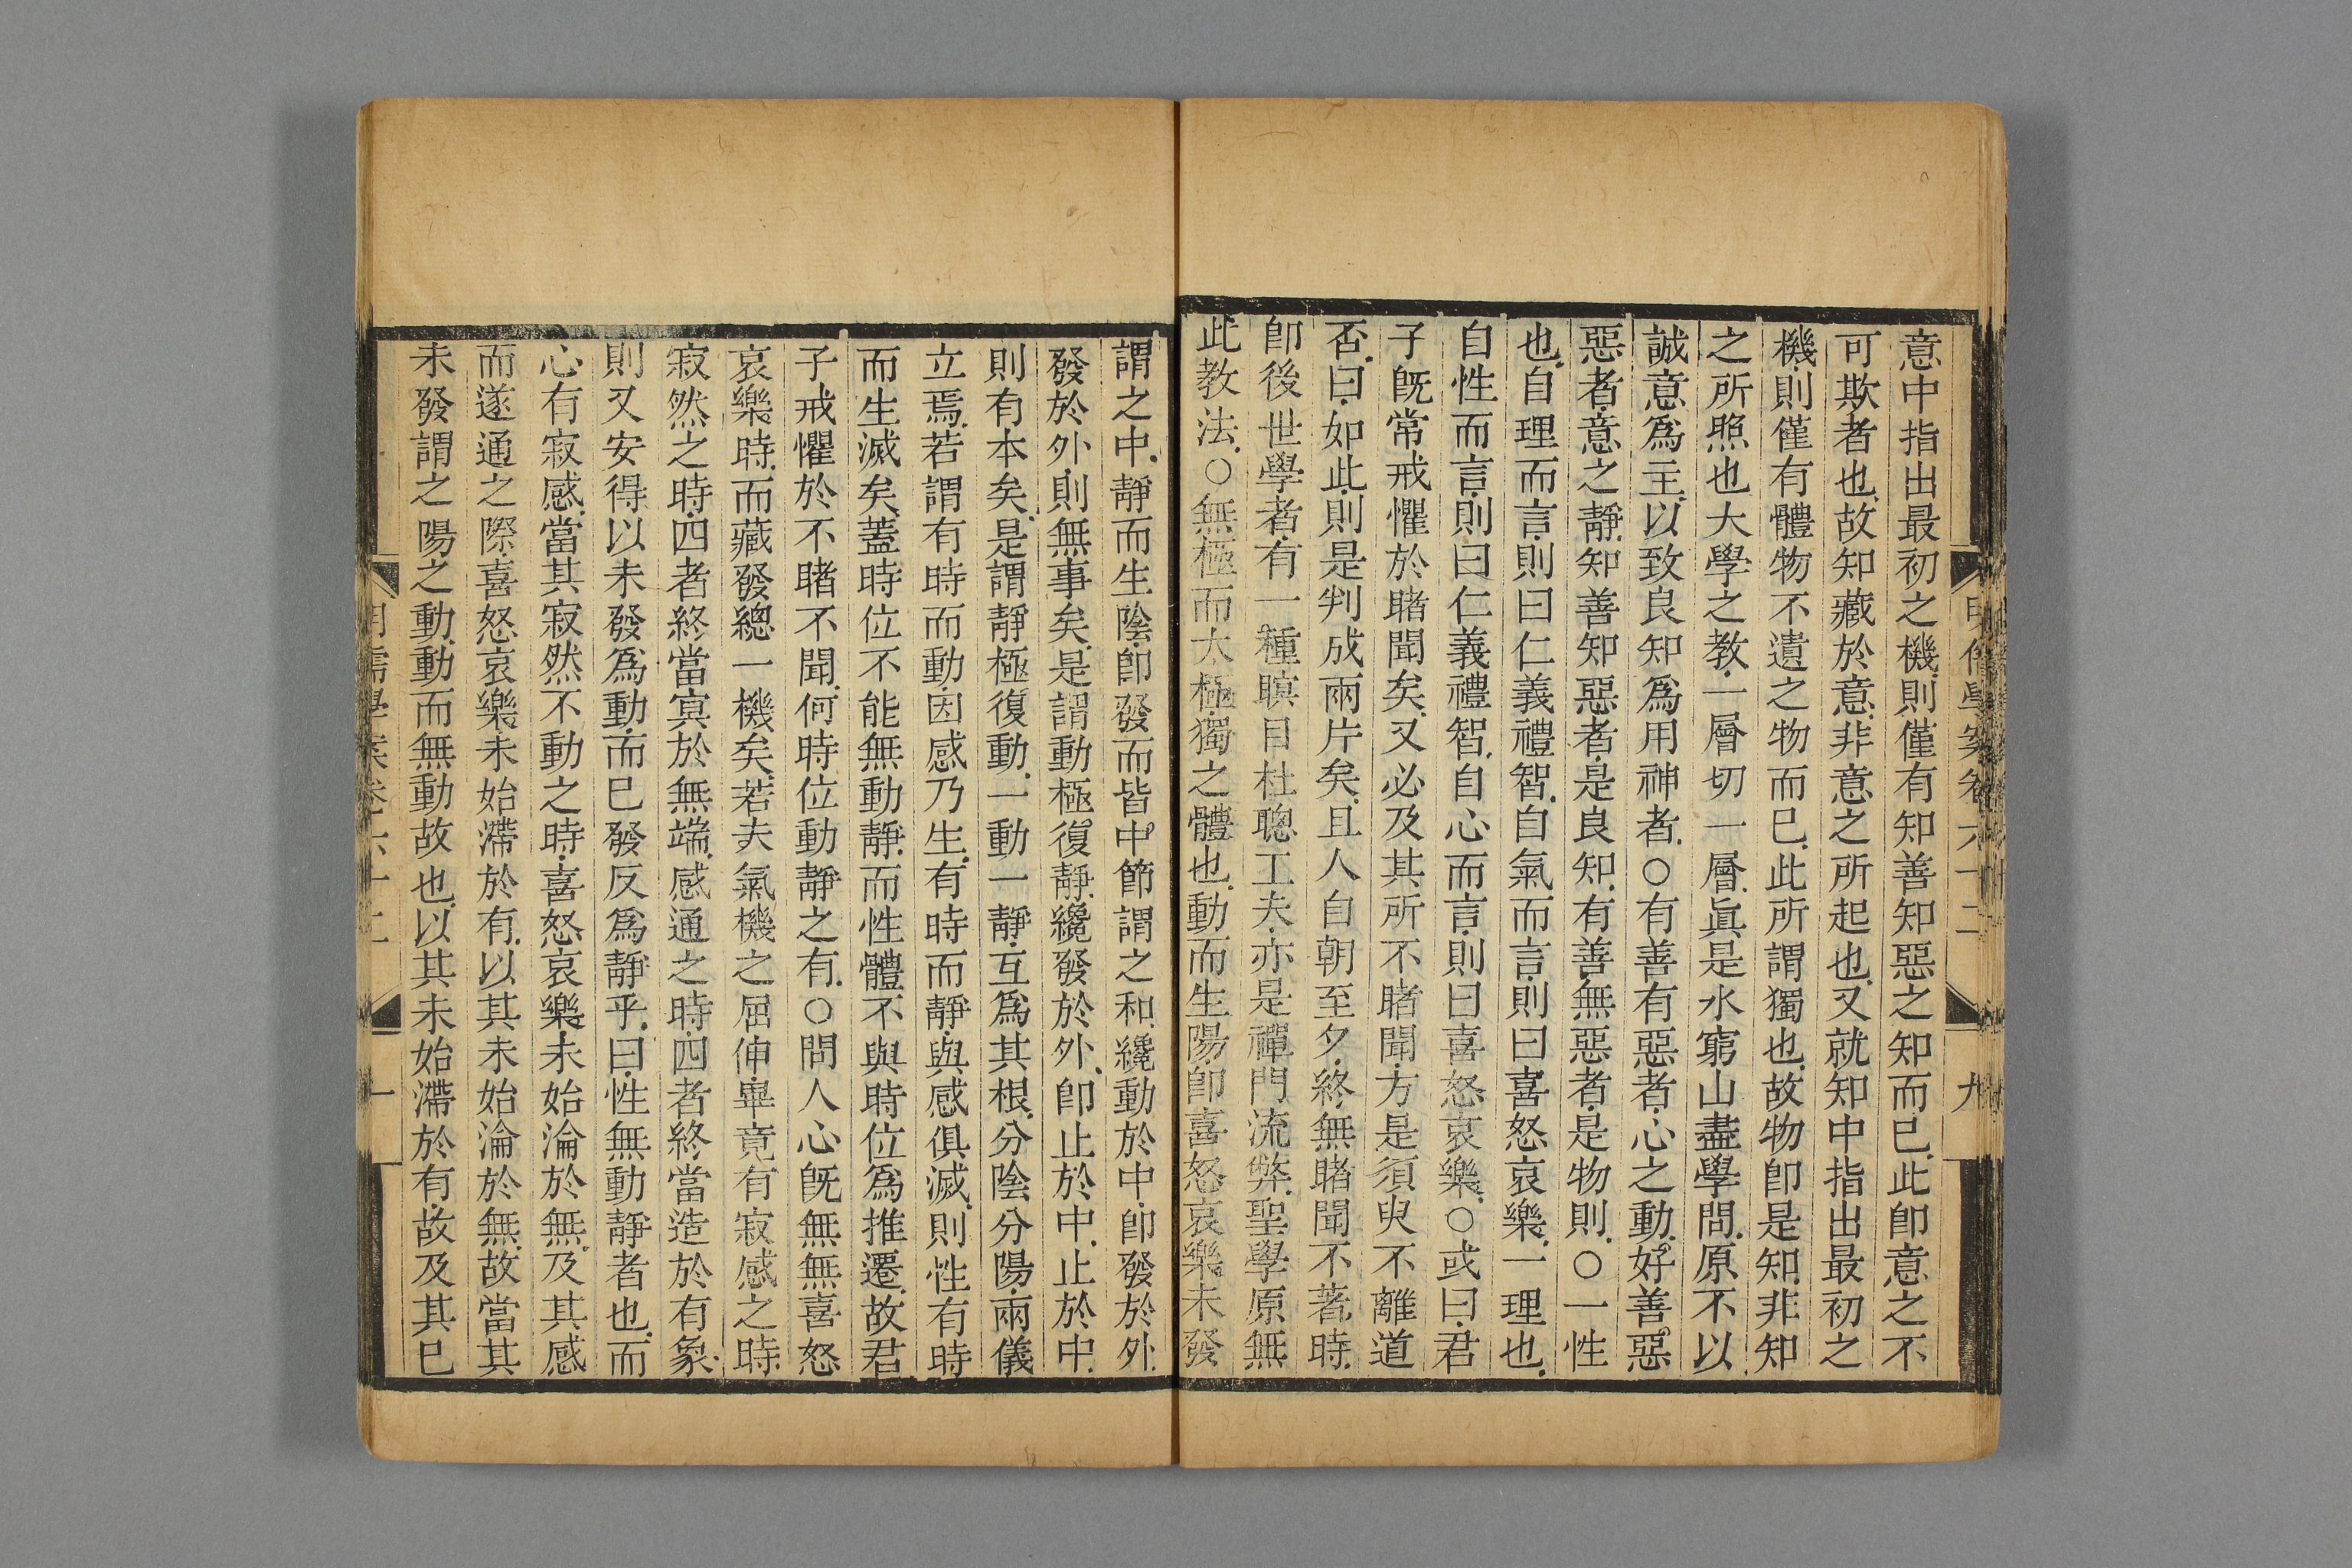 意中指出最初之機則僅有知善知惡之知而已此卽意之不
可欺者也故知藏於意非意之所起也又就知中指出最初之
機則僅有體物不遺之物而已此所謂獨也故物卽是知非知
之所照也大學之教一層切一層眞是水窮山盡學問原不以
誠意爲主以致良知爲用神者○有善有惡者心之動好善惡
惡者意之靜知善知惡者是良知有善無惡者是物則○一性
也自理而言則曰仁義禮智自氣而言則曰喜怒哀樂一理也
自性而言則曰仁義禮智自心而言則曰喜怒哀樂○或曰君
子旣常戒懼於睹聞矣又必及其所不睹聞方是須臾不離道
否曰如此則是判成兩片矣且人自朝至夕終無睹聞不著時
卽後世學者有一種瞑目杜聰工夫亦是禪門流弊聖學原無
此教法○無極而太極獨之體也動而生陽卽喜怒哀樂未發
明儒學案卷六十二 九
謂之中靜而生陰卽發而皆中節謂之和纔動於中卽發於外
發於外則無事矣是謂動極復靜纔發於外卽止於中止於中
則有本矣是謂靜極復動一動一靜互爲其根分陰分陽兩儀
立焉若謂有時而動因感乃生有時而靜與感俱滅則性有時
而生滅矣蓋時位不能無動靜而性體不與時位爲推遷故君
子戒懼於不睹不聞何時位動靜之有○問人心旣無無喜怒
哀樂時而藏發總一機矣若夫氣機之屈伸畢竟有寂感之時
寂然之時四者終當冥於無端感通之時四者終當造於有象
則又安得以未發爲動而已發反爲靜乎曰性無動靜者也而
心有寂感當其寂然不動之時喜怒哀樂未始淪於無及其感
而遂通之際喜怒哀樂未始滯於有以其未始淪於無故當其
未發謂之陽之動動而無動故也以其未始滯於有故及其已
明儒學案卷六十二